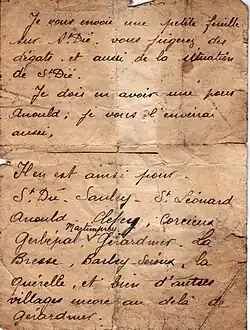 Je vous envoie une petite feuille
sur St Dié. vous jugerez des
dégats, et aussi de la situation
de St Dié
Je dois en avoir une pour
Anould; je vous l'enverrai
aussi,
Il en est ainsi pour.
St Dié. Saulcy. St Léonard
Anould, Clefcy, Corcieux
Martimprey
Gerbépal Gérardmer. La
Bresse, Barbey-Seroux, la
Querelle, et bien d'autres
villages encore au delà de
Gérardmer.